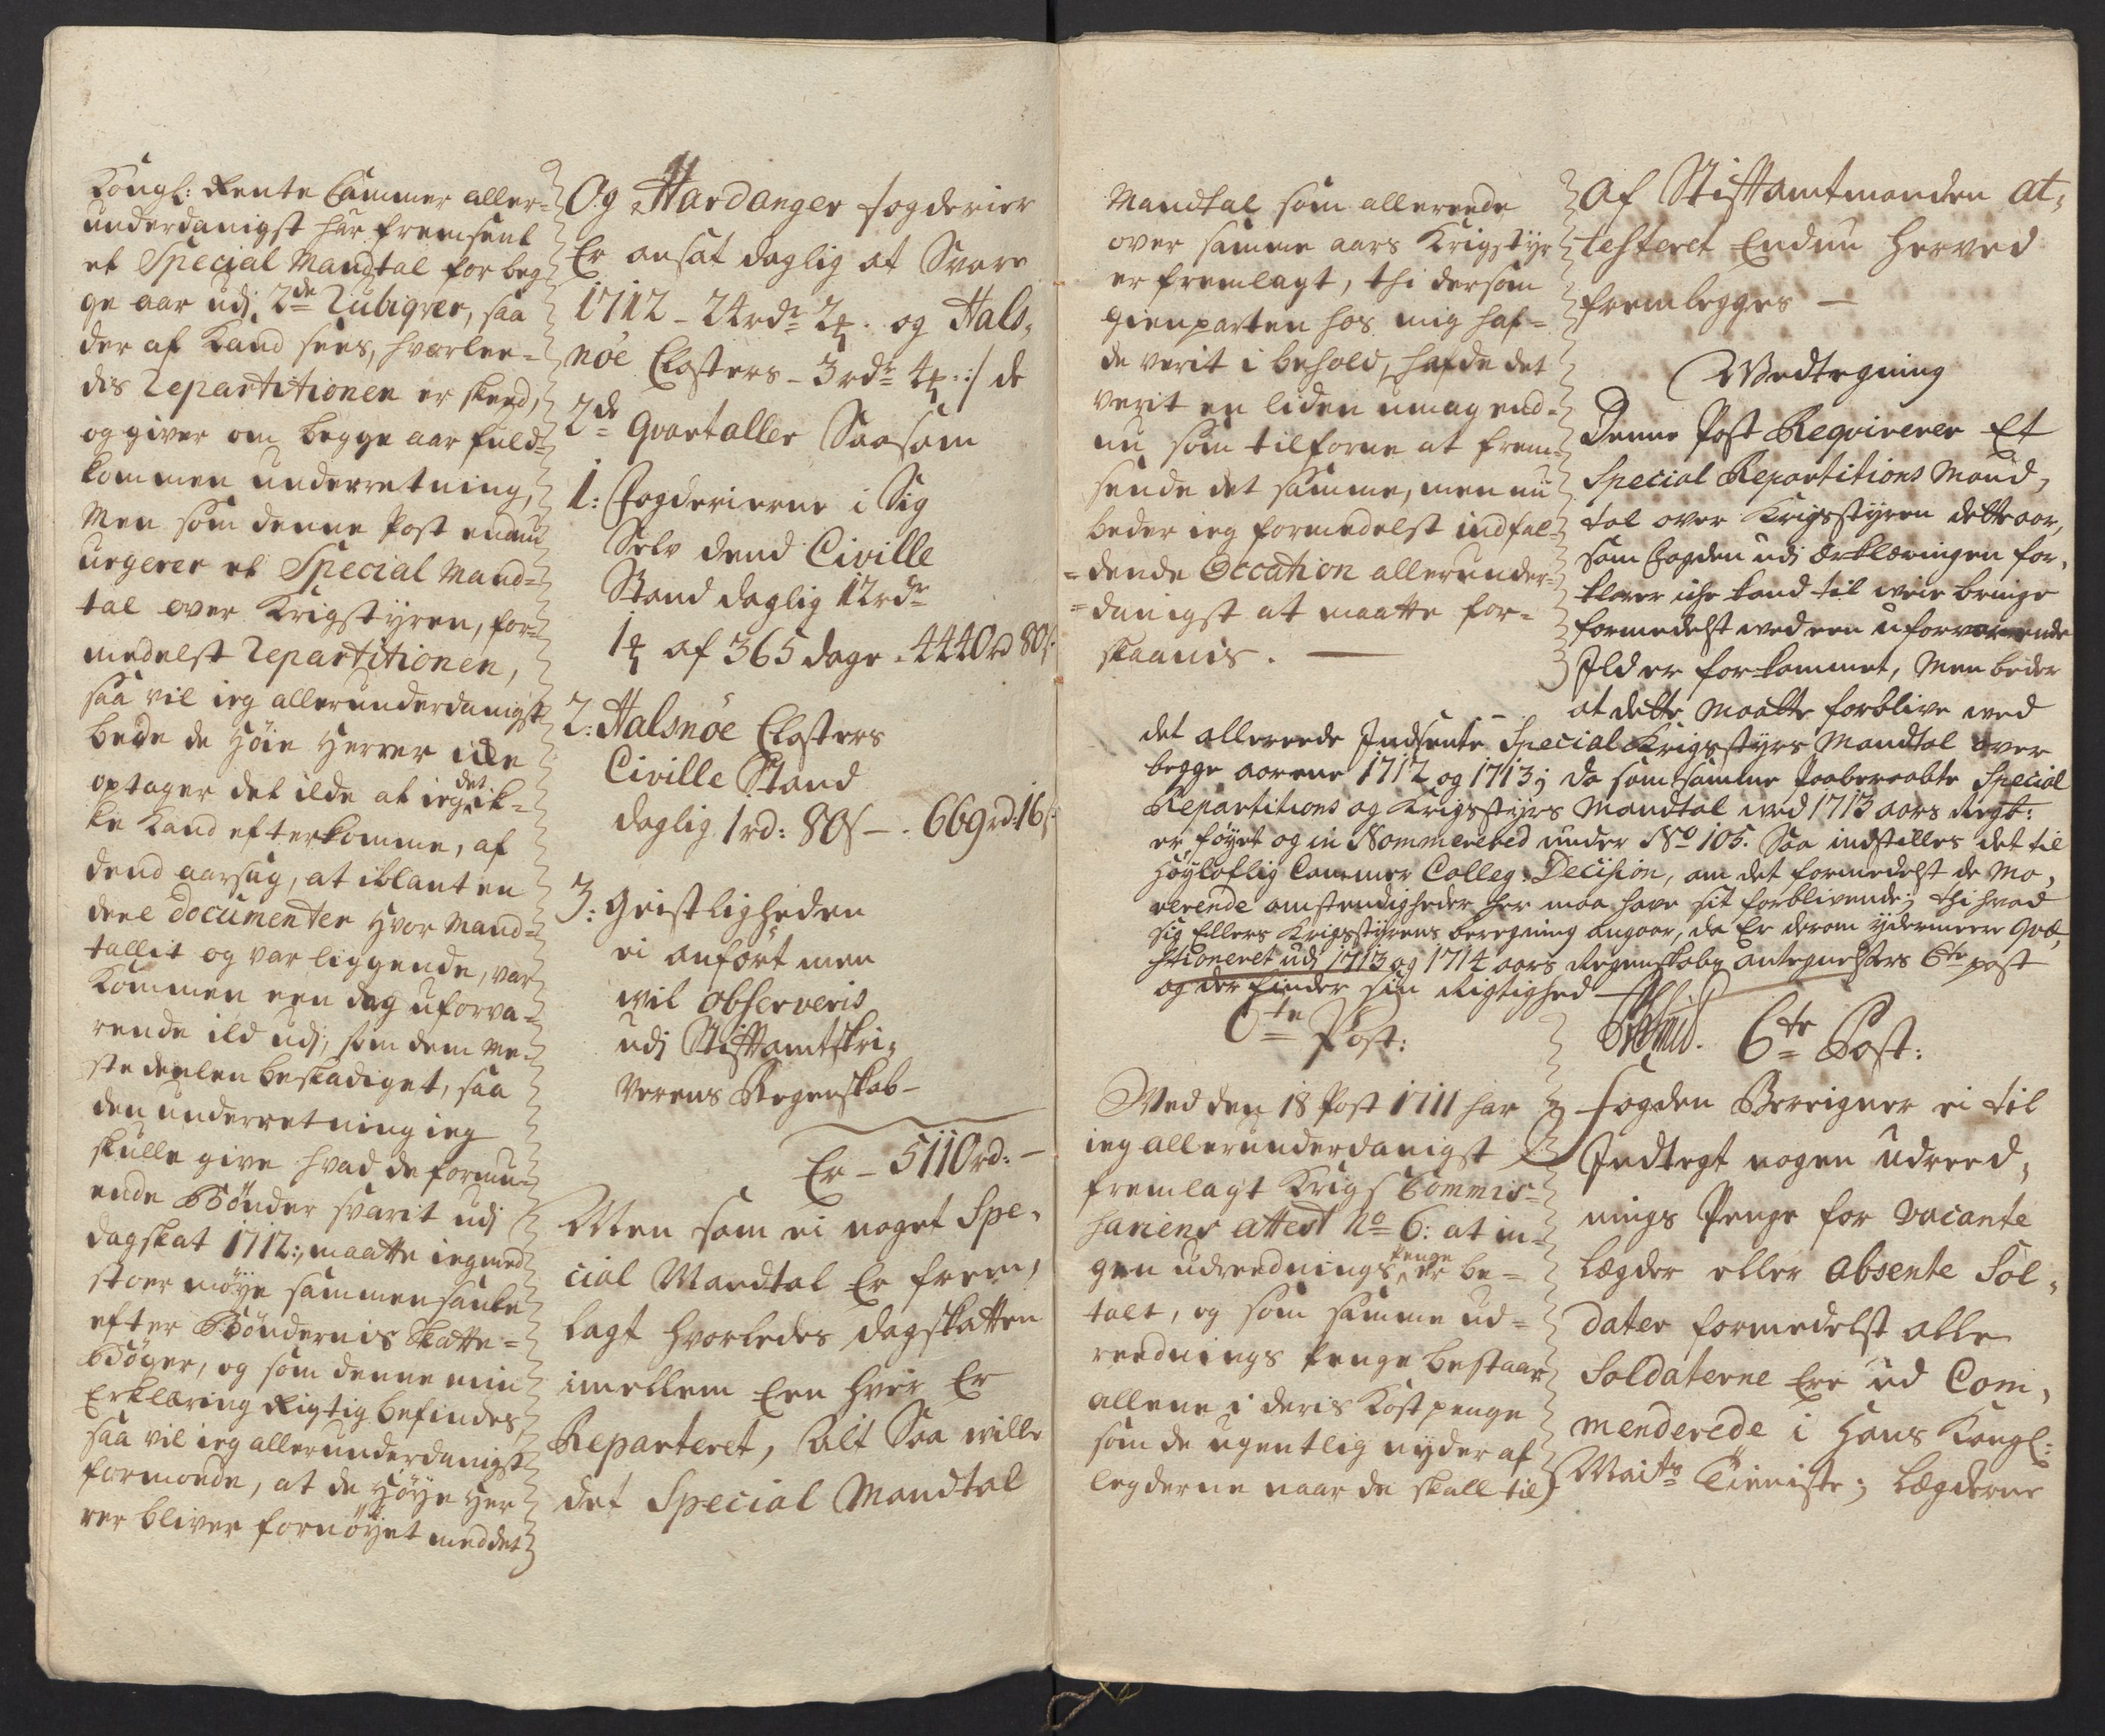 Kongl: Rente Cammer aller=
underdanigst har fremsent
et Special Mandtal for beg=
ge aar udj 2de Rubiqver, saa
der af Kand sees, hvorlee=
dis Repartitionen er skeed,
og giver om begge aar fuld=
kommen underretning,
Men som denne Post endnu
urgerer et Special Mand=
tal over Krigstyren, for=
medelst Repartitionen,
saa vil ieg allerunderdanigst
bede de Høie Herrer icke
optager det ilde at ieg det ik=
ke Kand efterkomme, af
dend aarsag, at iblant en
deel documenter hvor Mand=
tallit og var liggende, var
Kommen een dag uforva=
rende ild udj, som dem me=
ste deelen beskadiget, saa
den underretning ieg
skulle give hvad de formu=
ende Bønder svarit udj
dagskat 1712:, maatte ieg med
stoer møye sammensancke
efter Bøndernis Skatte=
Bøger, og som denne min
Erklæring Rigtig befindes,
saa vil ieg allerunderdanigst
formoede, at de Høye Her
rer bliver fornøyet med det
Og Hardanger fogderier
Er ansat daglig at Svare
1712 - 24rdr 2 . og Hals,
nøe Closters - 3rdr 4 :/ de
2de qvartaller Saasom
1: Fogderierne i Sig
Selv dend Civille
Stand daglig 12rdr
1 af 365 dage - 4440rd 80s:
2: Halsnøe Closters
Civille Stand
daglig 1rd: 80s - . 669rd: 16s:
3: Geistligheden
ei anført men
vil observeris
udj Stiftamtskri=
verens Regenskab -
Er - 5110rd: -
Men som ei noget Spe,
cial Mandtal Er frem,
lagt hvorledes dagskatten
imellem Een hver Er
Reparteret, Alt Saa ville
det Special Mandtal
Mandtal som allereede
over samme aars Krigstyr
er fremlagt, thi dersom
gienparten hos mig haf=
de verit i behold, hafde det
verit en liden umag end=
nu som tilforne at frem=
sende det samme, men nu
beder ieg formedelst indfal=
=dende Occation allerunder=
=danigst at maatte for=
skaanis. -
Af Stiftamtmanden At,
testeret Endnu herved
fremlegges -
Vedtegning
Denne Post Reqvirerer Et
Special Repartitions Mand,
tal over Krigsstyren dette aar,
som Fogden udj Erklæringen for,
klarer iche kand til weie bringe
formedelst ved een uforvarende
Ild er forkommet, Men beder
at dette maatte forblive ved
det allereede Indsente Special Krigsstyrs Mandtal over
begge aarene 1712 og 1713; da som samme Paaberaabte Special
Repartitions og Krigsstyrs Mandtal ved 1713 aars Regsk:
er føyet og in Nommerered under No 105. Saa indstilles det til
Høyloflig Cammer Colleg: Decision, om det formedelst de Mo,
verende omstendigheder her maa have sit forblivende; thi hvad
sig Ellers Krigsstyrens beregning angaar, da Er derom ydermeere Qvæ,
stioneret udj 1713 og 1714 aars Regenskabs antegnelsers 6te post
og der finder sin Rigtighed -
6te Post:
Ved den 18 Post 1711 har
ieg allerunderdanigst
fremlagt Krigs Commis=
sariens attest No 6: at in=
gen udreednings penge er be=
talt, og som samme ud=
reednings penge bestaar
allene i deris Kost penge
som de ugentlig nyder af
legderne naar de skall til
6te Post:
Fogden Bereigner ei til
Indtegt nogen Udreed,
nings Penge for Vacante
Lægder eller Absente Sol,
dater formedelst alle
Soldaterne Ere ud Com,
menderede i Hans Kongl:
Maits Tieniste; Lægderne